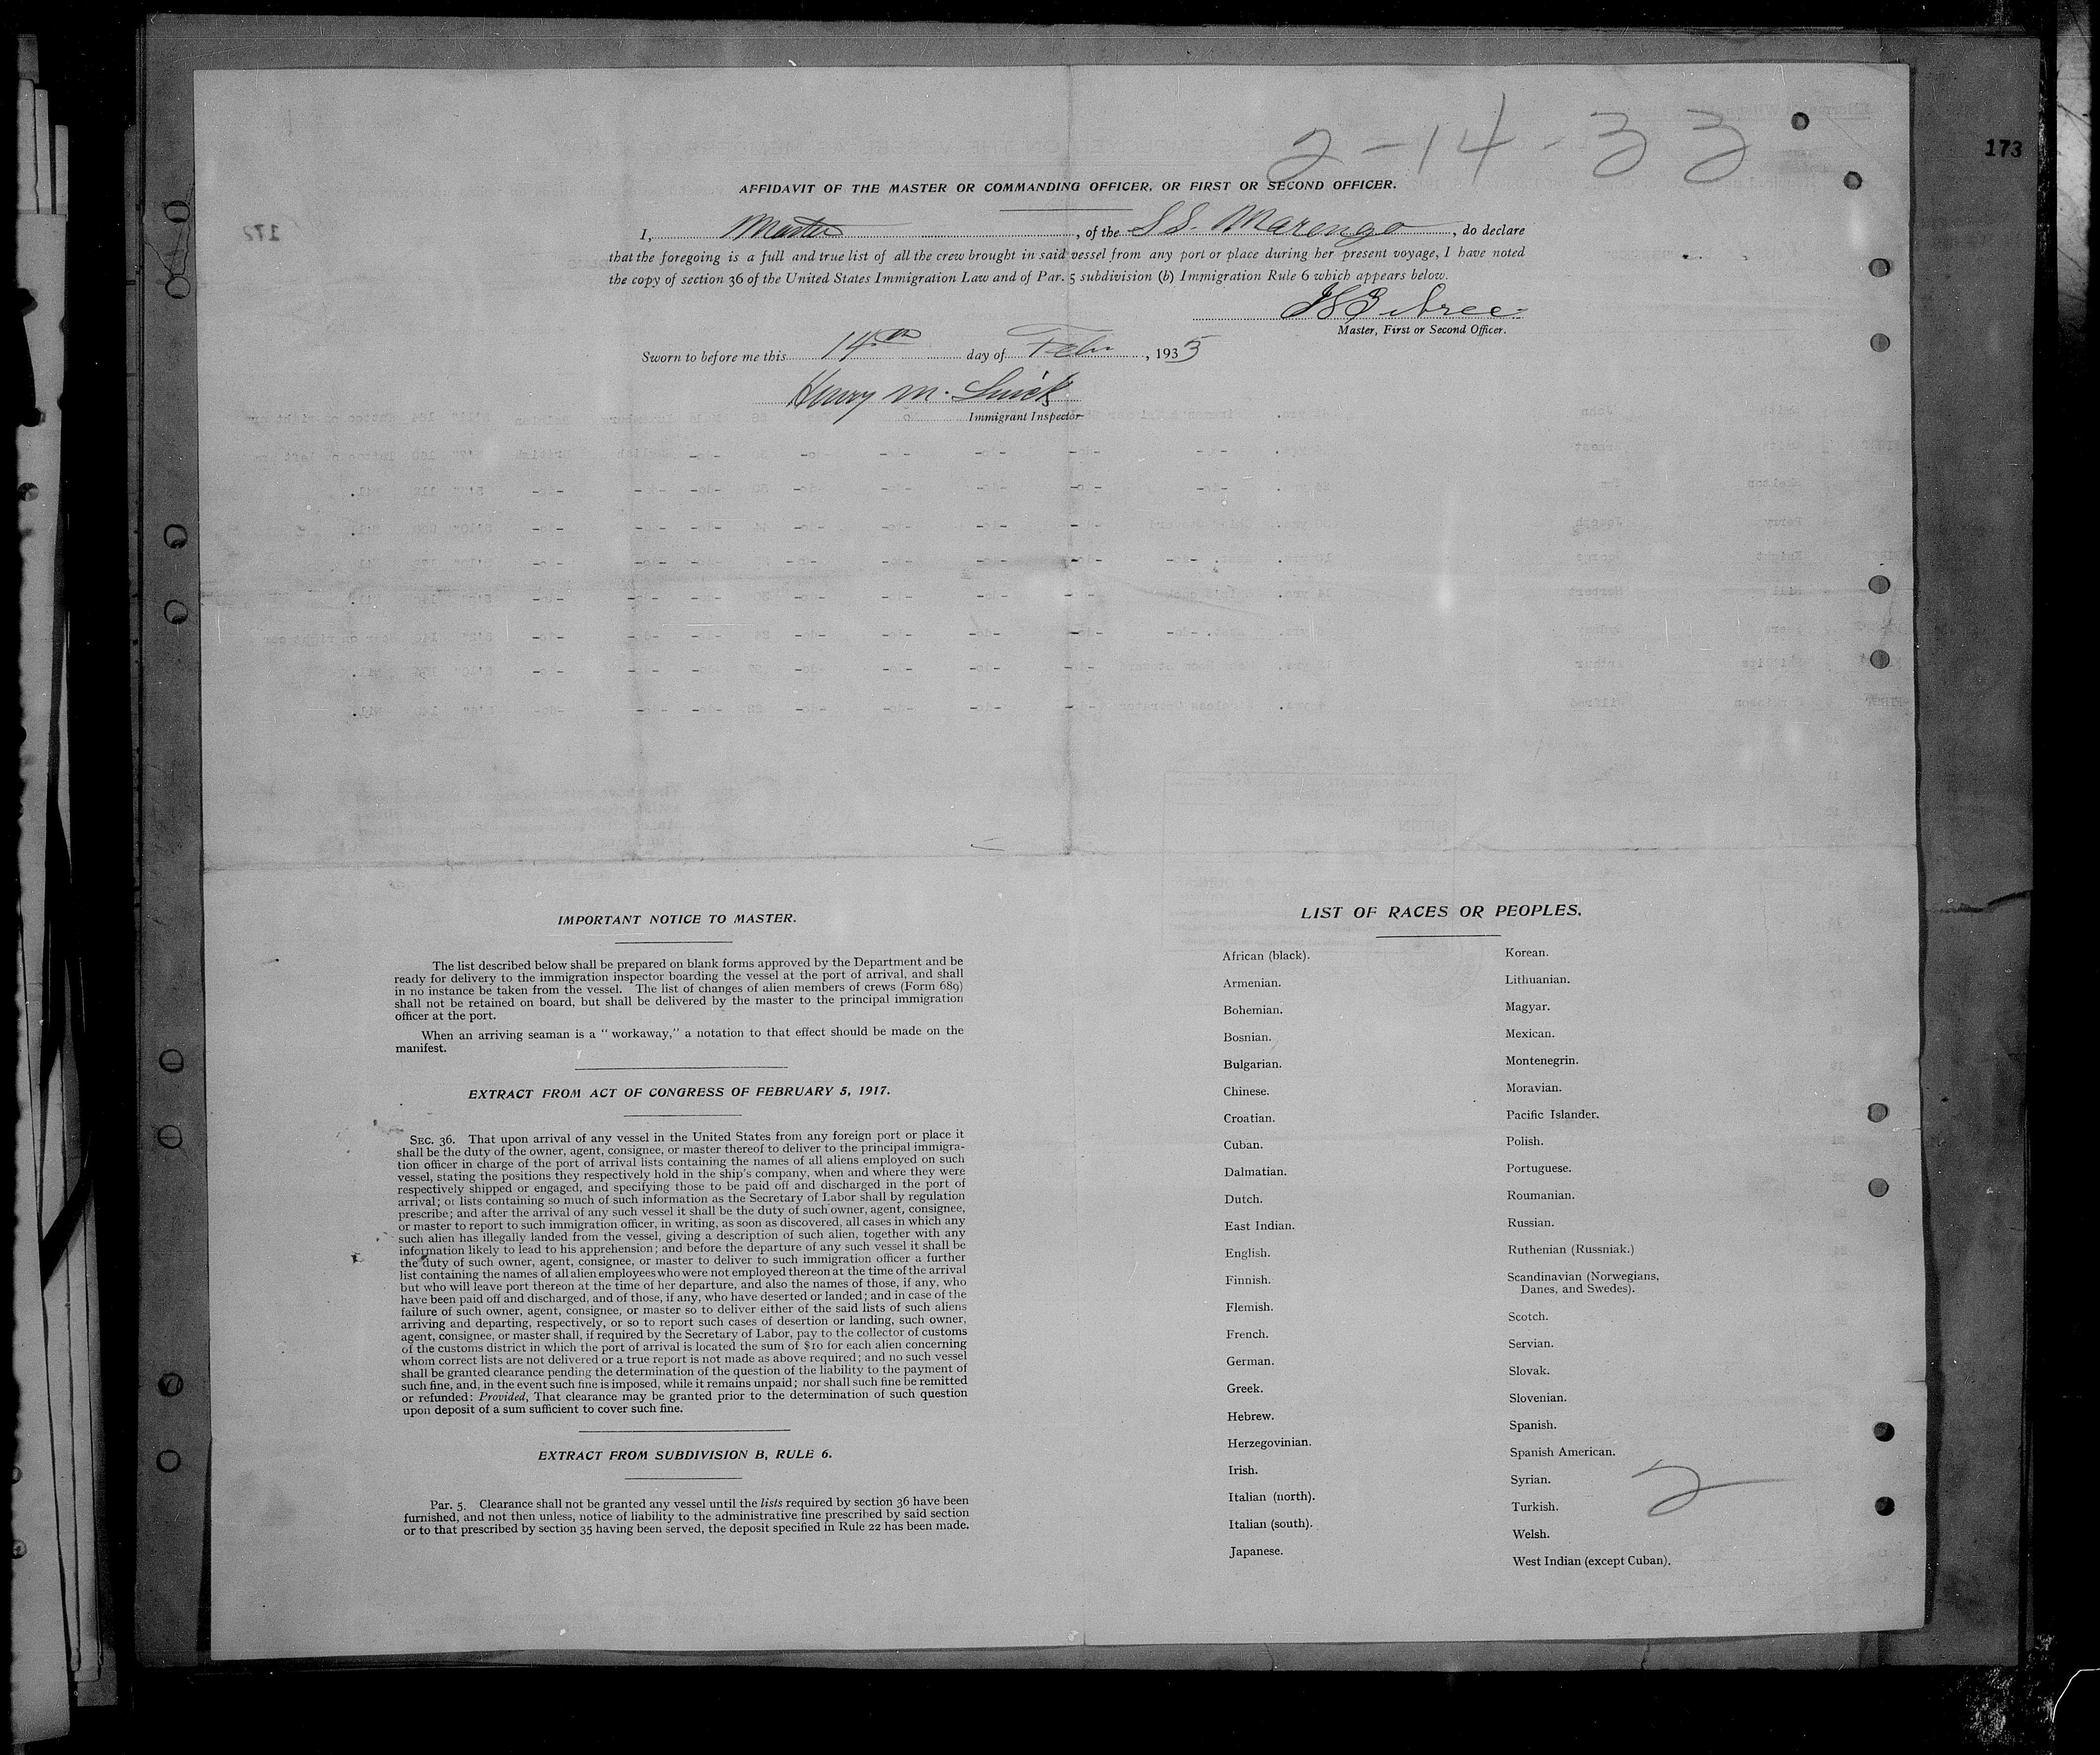 2-14-33
173
AFFIDAVIT OF THE MASTER OR COMMANDING OFFICER, OR FIRST OR SECOND OFFICER.
I, Master, of the S.S. Marengo, do declare
that the foregoing is a full and true list of all the crew brought in said vessel from any port or place during her present voyage, I have noted
the copy of section 36 of the United States Immigration Law and of Par. 5 subdivision (b) Immigration Rule 6 which appears below.
Master, First or Second Officer.
Sworn to before me this 14th day of Feb, 1933
Henry M.
Immigrant Inspector
172
IMPORTANT NOTICE TO MASTER.
The list described below shall be prepared on blank forms approved by the Department and be
ready for delivery to the immigration inspector boarding the vessel at the port of arrival, and shall
in no instance be taken from the vessel. The list of changes of alien members of crews (Form 689)
shall not be retained on board, but shall be delivered by the master to the principal immigration
officer at the port.
When an arriving seaman is a "workaway," a notation to that effect should be made on the
manifest.
EXTRACT FROM ACT OF CONGRESS OF FEBRUARY 5, 1917.
SEC. 36. That upon arrival of any vessel in the United States from any foreign port or place it
shall be the duty of the owner, agent, consignee, or master thereof to deliver to the principal immigra-
tion officer in charge of the port of arrival lists containing the names of all aliens employed on such
vessel, stating the positions they respectively hold in the ship's company, when and where they were
respectively shipped or engaged, and specifying those to be paid off and discharged in the port of
arrival; or lists containing so much of such information as the Secretary of Labor shall by regulation
prescribe; and after the arrival of any such vessel it shall be the duty of such owner, agent, consignee,
or master to report to such immigration officer, in writing, as soon as discovered, all cases in which any
such alien has illegally landed from the vessel, giving a description of such alien, together with any
information likely to lead to his apprehension; and before the departure of any such vessel it shall be
the duty of such owner, agent, consignee, or master to deliver to such immigration officer a further
list containing the names of all alien employees who were not employed thereon at the time of the arrival
but who will leave port thereon at the time of her departure, and also the names of those, if any, who
have been paid off and discharged, and of those, if any, who have deserted or landed; and in case of the
failure of such owner, agent, consignee, or master so to deliver either of the said lists of such aliens
arriving and departing, respectively, or so to report such cases of desertion or landing, such owner,
agent, consignee, or master shall, if required by the Secretary of Labor, pay to the collector of customs
of the customs district in which the port of arrival is located the sum of $10 for each alien concerning
whom correct lists are not delivered or a true report is not made as above required; and no such vessel
shall be granted clearance pending the determination of the question of the liability to the payment of
such fine, and, in the event such fine is imposed, while it remains unpaid; nor shall such fine be remitted
or refunded: Provided, That clearance may be granted prior to the determination of such question
upon deposit of a sum sufficient to cover such fine.
EXTRACT FROM SUBDIVISION B, RULE 6.
Par. 5. Clearance shall not be granted any vessel until the lists required by section 36 have been
furnished, and not then unless, notice of liability to the administrative fine prescribed by said section
or to that prescribed by section 35 having been served, the deposit specified in Rule 22 has been made.
LIST OF RACES OR PEOPLES.
African (black).
Armenian.
Bohemian.
Bosnian.
Bulgarian.
Chinese.
Croatian.
Cuban.
Dalmatian.
Dutch.
East Indian.
English.
Finnish.
Flemish.
French.
German.
Greek.
Hebrew.
Herzegovinian.
Irish.
Italian (north).
Italian (south).
Japanese.
Korean.
Lithuanian.
Magyar.
Mexican.
Montenegrin.
Moravian.
Pacific Islander.
Polish.
Portuguese.
Roumanian.
Russian.
Ruthenian (Russniak.)
Scandinavian (Norwegians,
Danes, and Swedes).
Scotch.
Servian.
Slovak.
Slovenian.
Spanish.
Spanish American.
Syrian.
Turkish.
Welsh.
West Indian (except Cuban).
2